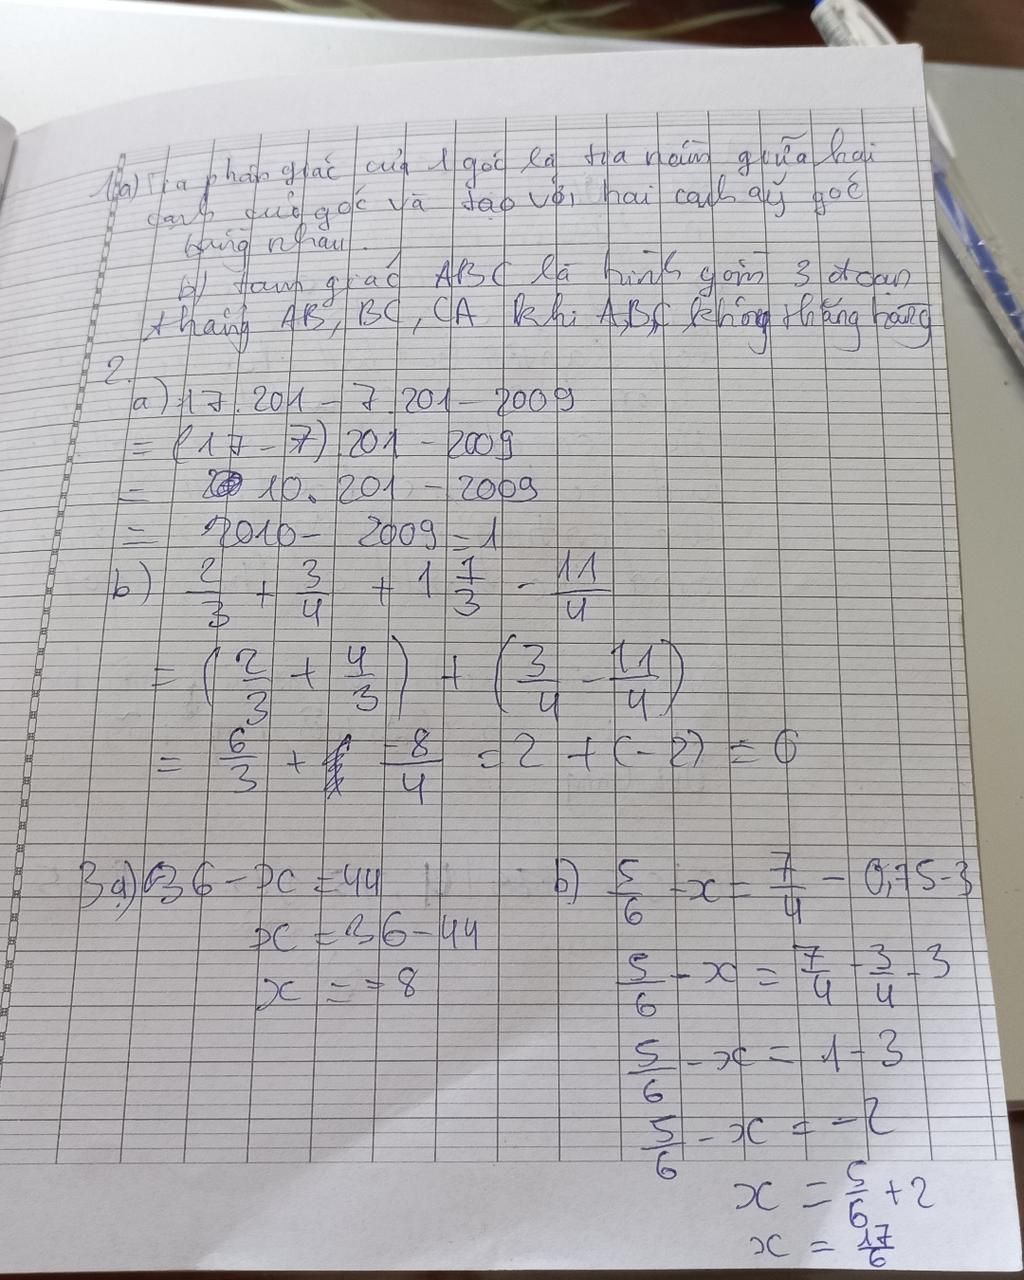 1a) Tia phân giác của 1 góc là tia nằm giữa hai
cạnh của góc và tạo với hai cạnh ấy góc
bằng nhau.
b) tam giác ABC là hình gồm 3 đoạn
thẳng AB, BC, CA khi A,B,C không thẳng hàng
2.
a) 17.201 - 7.201 - 2009
= (17 - 7) 201 - 2009
= 10. 201 - 2009
= 2010 - 2009 = 1
b) 2/3 + 3/4 + 1 1/3 - 11/4
= (2/3 + 4/3) + (3/4 - 11/4)
= 6/3 + -8/4 = 2 + (-2) = 0
3a) 36 - x = 44
x = 36 - 44
x = -8
b) 5/6 - x = 7/4 - 0,75 - 3
5/6 - x = 7/4 - 3/4 - 3
5/6 - x = 1 - 3
5/6 - x = -2
x = 5/6 + 2
x = 17/6